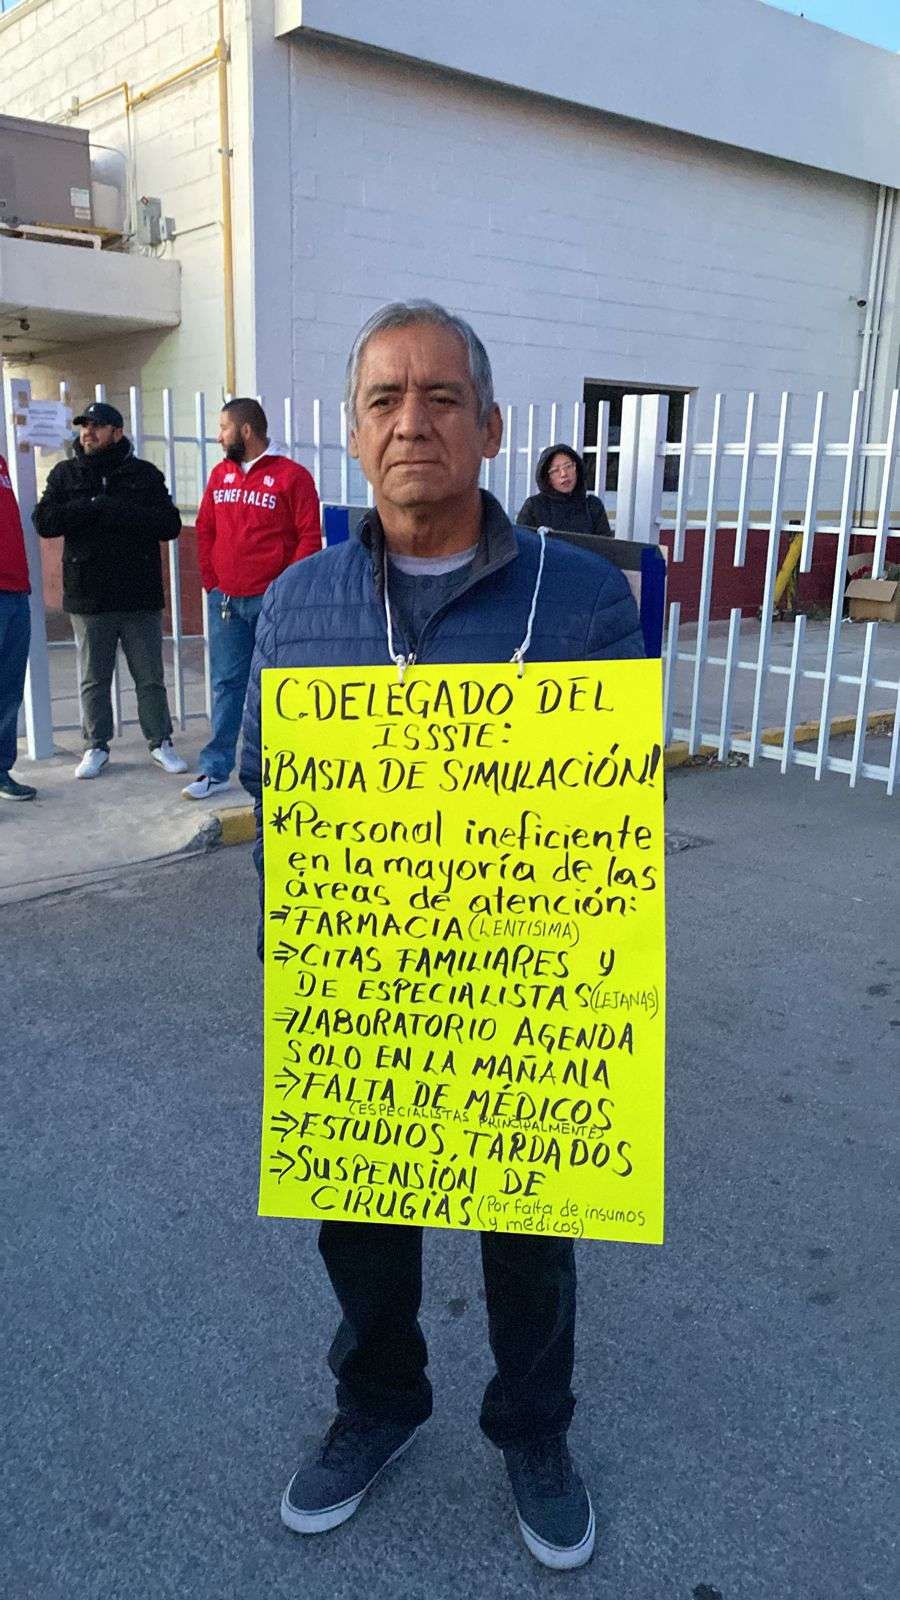 GENERALES
C. DELEGADO DEL
ISSSTE:
¡BASTA DE SIMULACIÓN!
*Personal ineficiente
en la mayoría de las
áreas de atención:
⇒FARMACIA (LENTISIMA)
⇒CITAS FAMILIARES Y
DE ESPECIALISTAS (LEJANAS)
⇒LABORATORIO AGENDA
SOLO EN LA MAÑANA
⇒FALTA DE MÉDICOS
(ESPECIALISTAS PRINCIPALMENTE)
⇒ESTUDIOS, TARDADOS
⇒SUSPENSIÓN DE
CIRUGIAS (Por falta de insumos
y médicos)